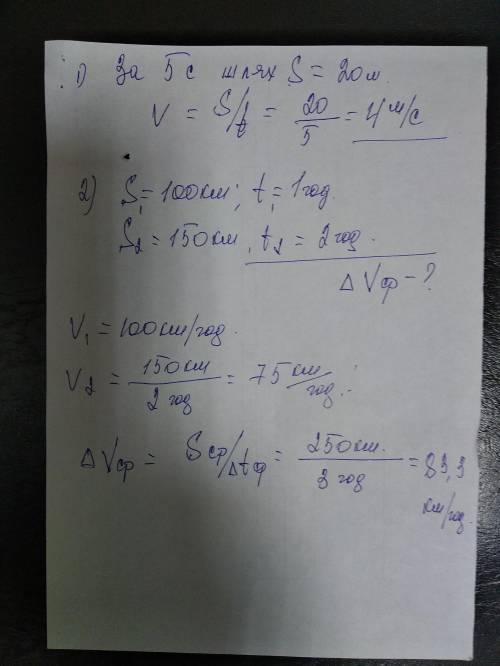 1) За 5с шлях S = 20м.
V = S/t = 20/5 = 4 м/с
2) S₁ = 100км; t₁ = 1год.
S₂ = 150км, t₂ = 2год.
Δ Vср - ?
V₁ = 100км/год.
V₂ = 150км/2 год = 75 км/год.
Δ Vср = Sср/Δtср = 250км./3 год = 83,3 км/год.